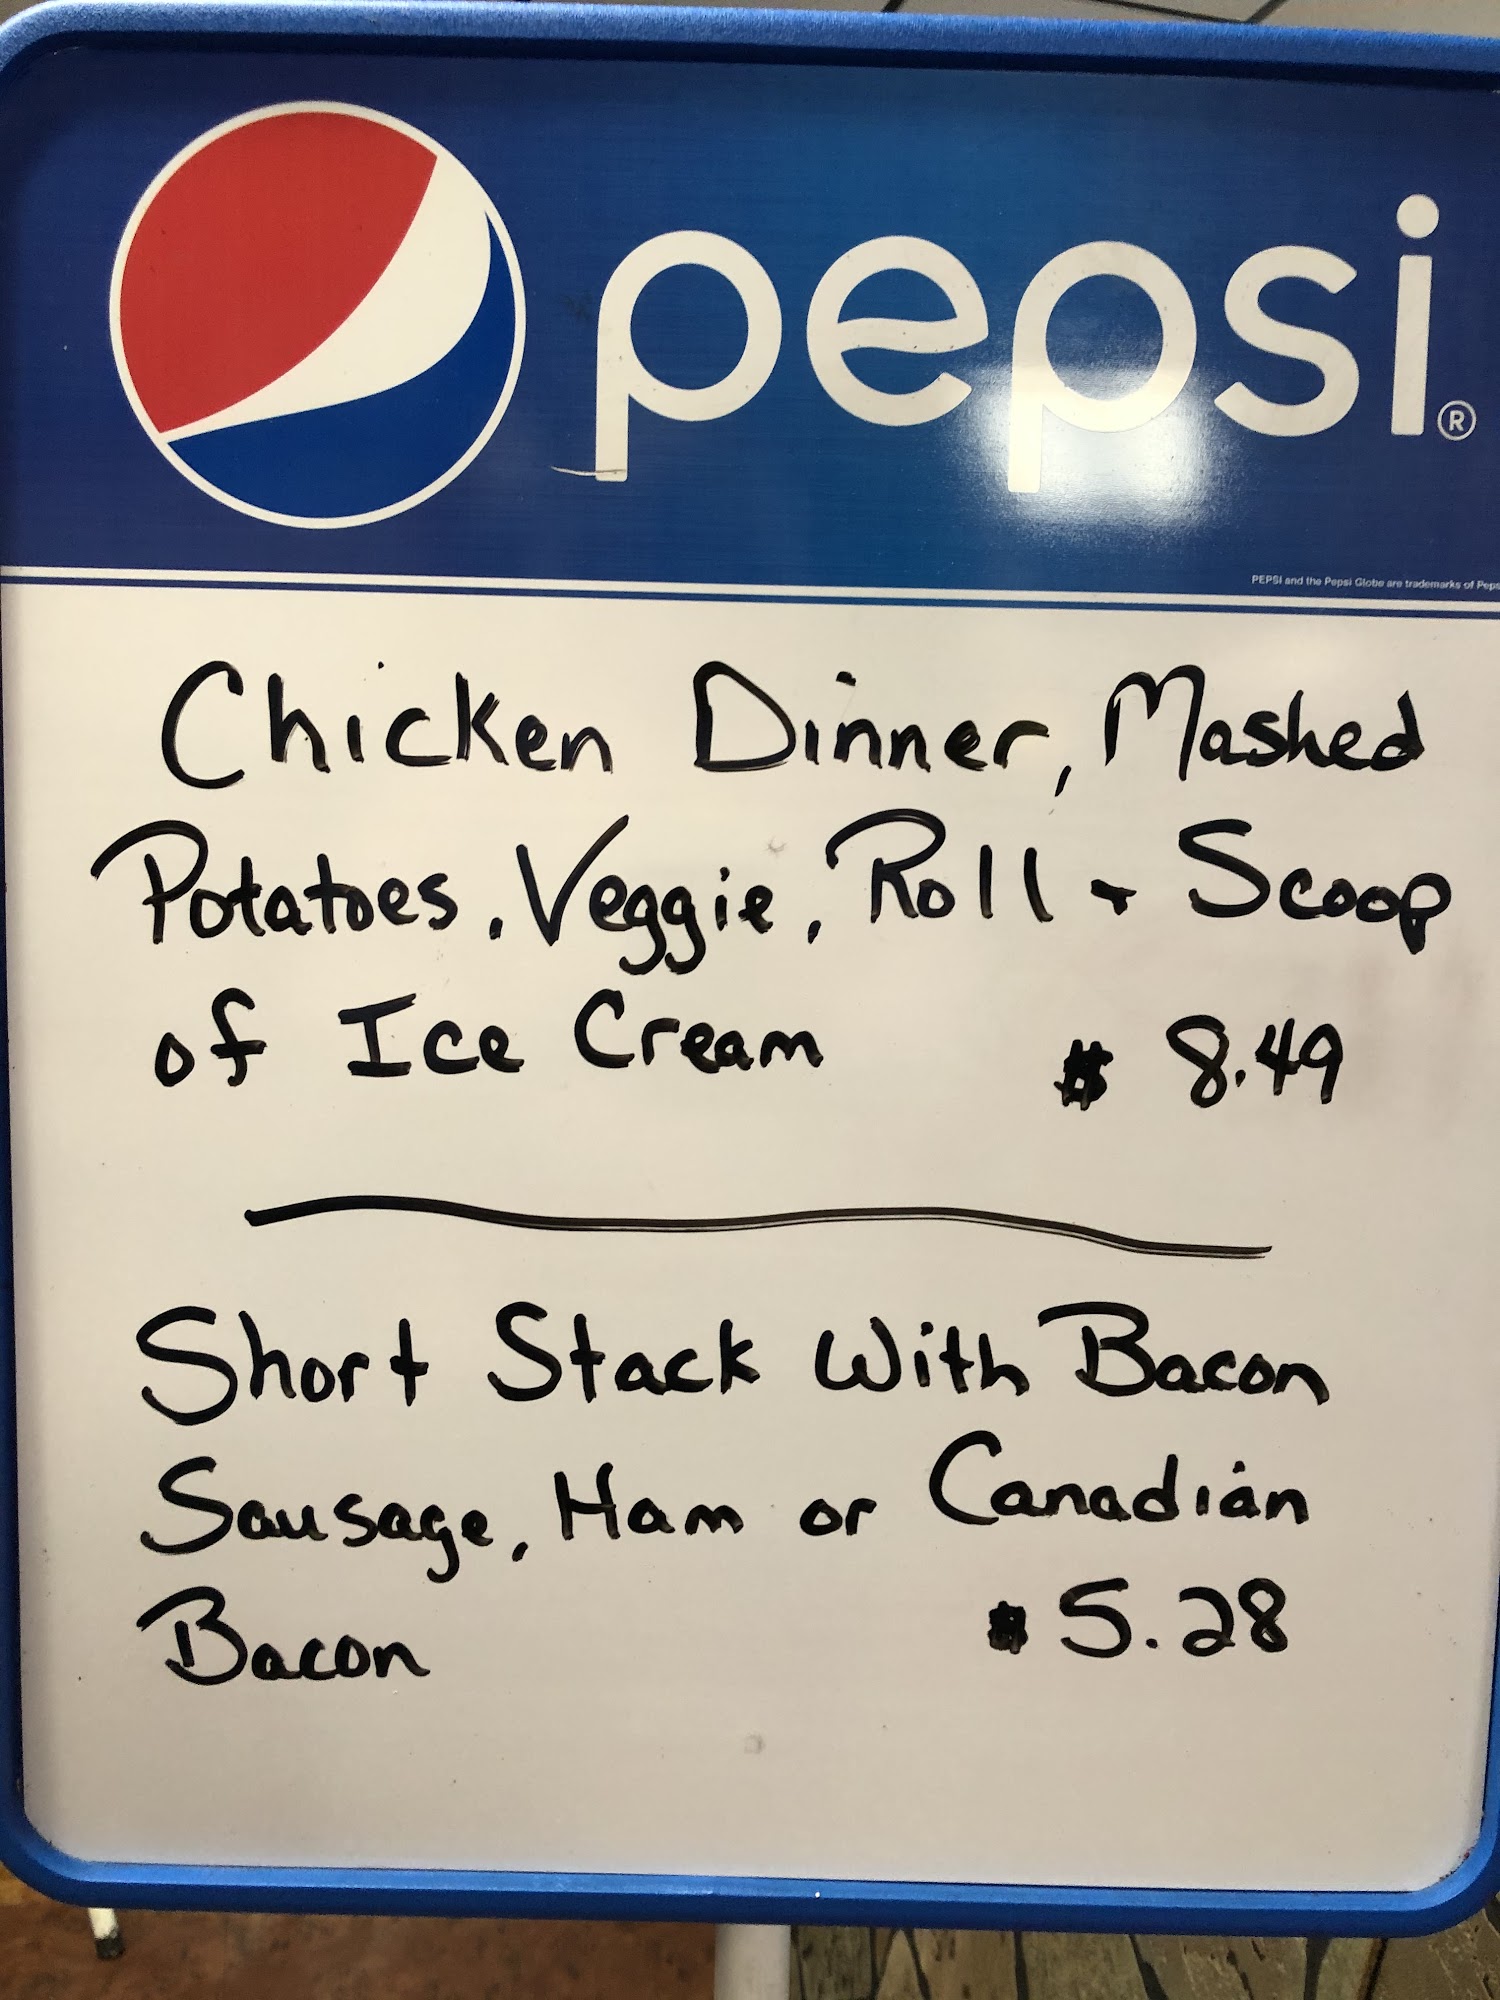 pepsi®
PEPSI and the Pepsi Globe are trademarks of Peps
Chicken Dinner, Mashed
Potatoes, Veggie, Roll + Scoop
of Ice Cream $ 8.49
Short Stack With Bacon
Sausage, Ham or Canadian
Bacon $ 5.28